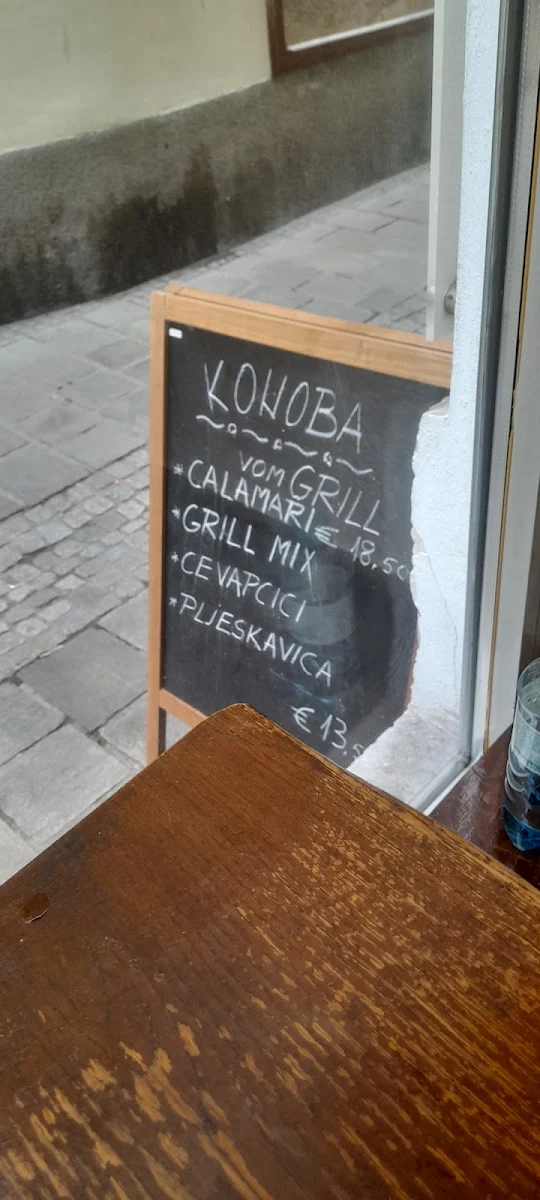 KONOBA
VOM GRILL
*CALAMARI € 18,50
*GRILL MIX
*CEVAPCICI
*PLJESKAVICA
€ 13,5